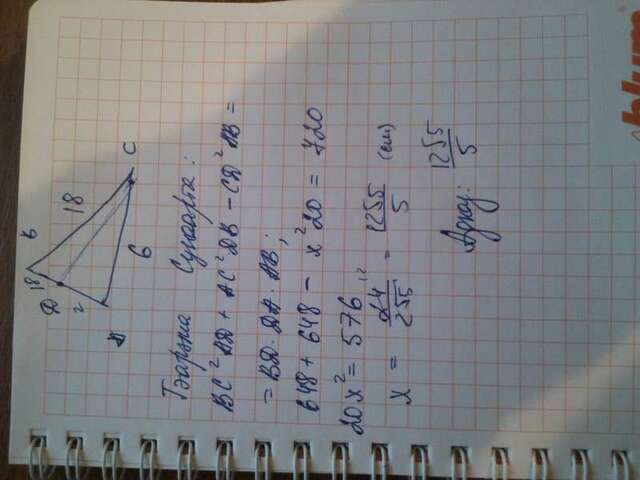 B
18
18
D
2
C
6
A
Тэарэма Сцюарта:
BC²AD + AC²DB - CD²AB =
= BD · DA · AB;
648 + 648 - x²20 = 720
20x² = 576
x = 24/2√5 ¹² = 12√5/5 (см)
Адказ: 12√5/5
blum